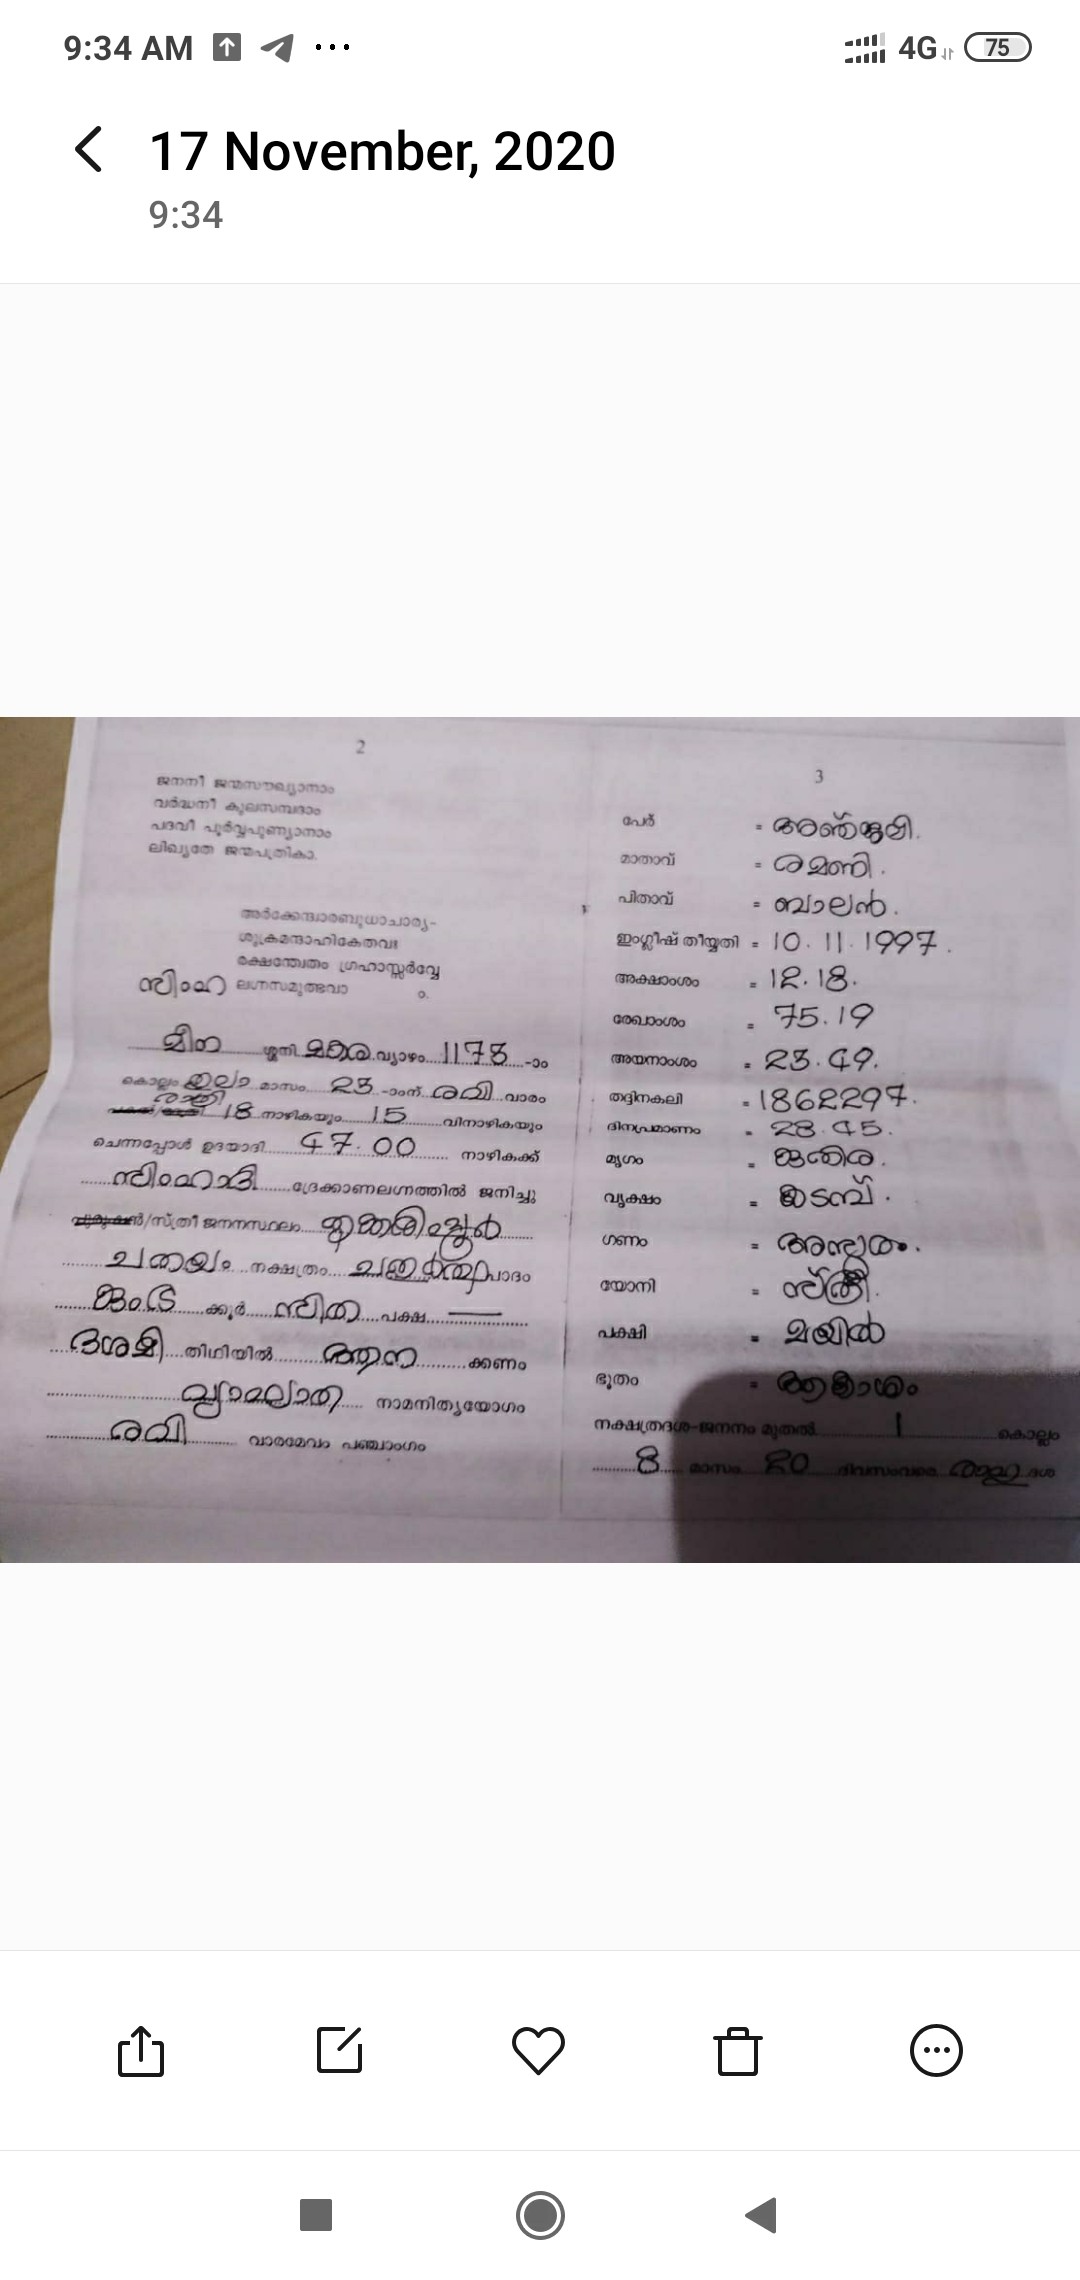 9:34 AM ...
4G 75
17 November, 2020
9:34
2
ജനനീ ജന്മസൗഖ്യാനാം
വർദ്ധനീ കുലസമ്പദാം
പദവീ പൂർവ്വപുണ്യാനാം
ലിഖ്യതേ ജന്മപത്രികാ.
അർക്കേന്ദ്വാരബുധാചാര്യ-
ശുക്രമന്ദാഹികേതവഃ
രക്ഷന്ത്വേതം ഗ്രഹാസ്സർവ്വേ
സിംഹ ലഗ്നസമുത്ഭവാ ം.
മീന ശ്ശനി മകര വ്യാഴം 1173 -ാം
കൊല്ലം തുലാ മാസം 25 -ാംന് രവി വാരം
രാത്രി 18 നാഴികയും 15 വിനാഴികയും
ചെന്നപ്പോൾ ഉദയാദി 47.00 നാഴികക്ക്
സിംഹാദി ദ്രേക്കാണലഗ്നത്തിൽ ജനിച്ചു
പുരുഷൻ/സ്ത്രീ ജനനസ്ഥലം
ചതയം നക്ഷത്രം ചതുർത്ഥ പാദം
കുംഭ ക്കൂർ സിത പക്ഷ
ദശമി തിഥിയിൽ ആന ക്കരണം
നാമനിത്യയോഗം
രവി വാരമേവം പഞ്ചാംഗം
3
പേര് = അഞ്ജലി.
മാതാവ് = രമണി.
പിതാവ് = ബാലൻ.
ഇംഗ്ലീഷ് തീയ്യതി = 10.11.1997.
അക്ഷാംശം = 12.18.
രേഖാംശം = 75.19
അയനാംശം = 23.49.
തദ്ദിനകലി = 1862297.
ദിനപ്രമാണം = 28.45.
മൃഗം = കുതിര.
വൃക്ഷം = കടമ്പ്.
ഗണം = അസുരം.
യോനി = സ്ത്രീ.
പക്ഷി = മയിൽ
ഭൂതം = ആകാശം
നക്ഷത്രദശ-ജനനം മുതൽ 1 കൊല്ലം
8 മാസം 20 ദിവസംവരെ രാഹു ദശ